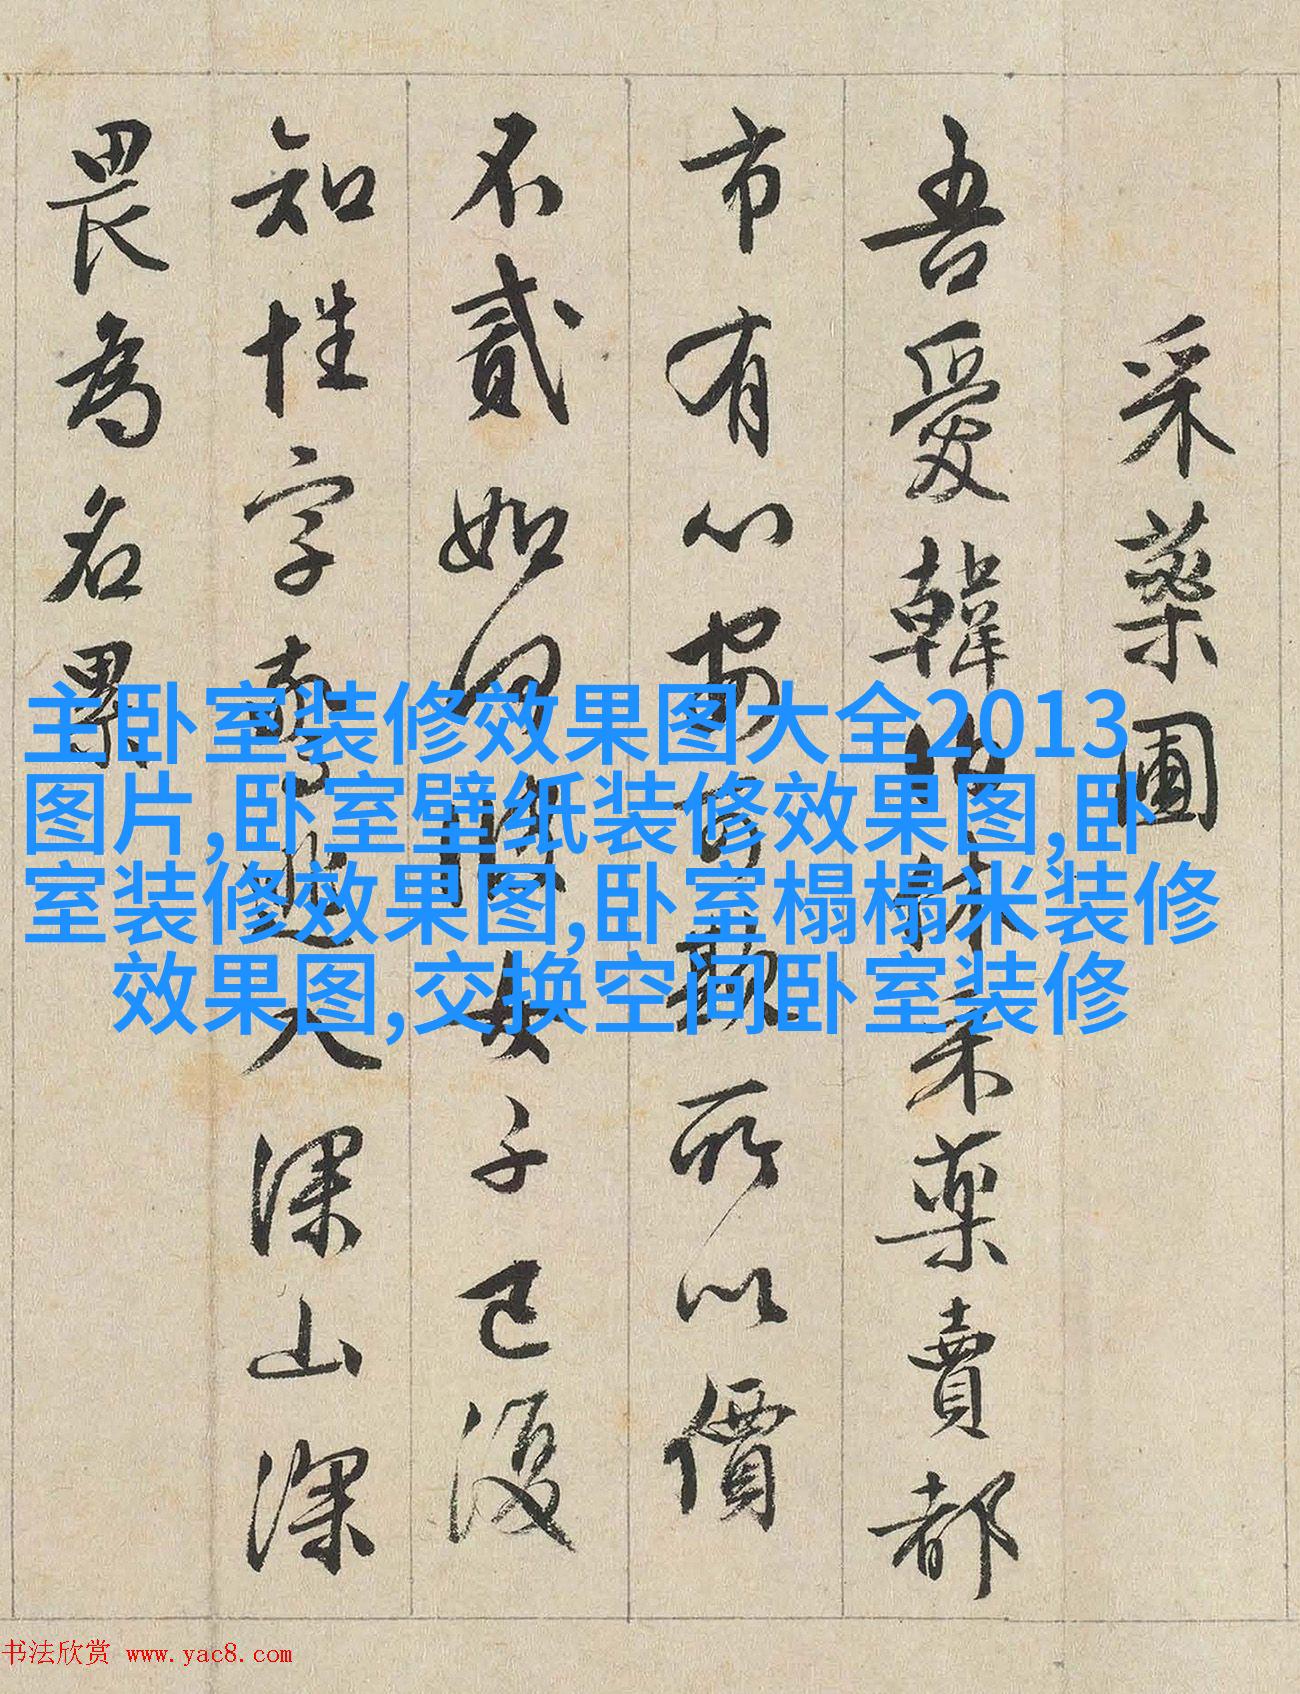 采藥圃
吾愛韓伯休采藥賣都
市有心安可欺所以價
不貳如何彼女子已復
知性字驚逃入深山深
畏為名累
主卧室装修效果图大全2013
图片,卧室壁纸装修效果图,卧
室装修效果图,卧室榻榻米装修
效果图,交换空间卧室装修
书法欣赏 www.yac8.com